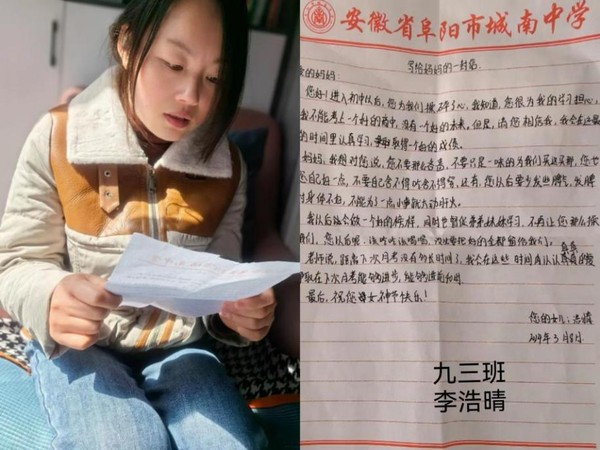 安徽省阜阳市城南中学
写给妈妈的一封信
爱的妈妈:
您好!进入初中以后,您为我们操碎了心,我知道,您很为我的学习担心,
我不能考上一个好的高中,没有一个好的未来,但是,请您相信我,我会在这最
的时间里认真学习,争取取得一个好的成绩。
妈妈,我想对您说,您不要那么吝啬,不要只是一味的为我们买这买那,您也
您自己好一点,不要自己舍不得吃舍不得穿,还有,您以后要少发些脾气,发脾
对身体不好,不能为了一点小事就大动肝火。
我以后还会做一个好的榜样,同时也督促弟弟妹妹学习,不再让您那么操
我们,您以后呢,该吃吃该喝喝,没必要把好的全都留给我们。
老师说,距离下次月考没有多长时间了,我会在这些时间里认认真真的
争取在下次月考能够进步,能够进前
最后,祝您女神节快乐!
您的女儿:浩晴
2019年3月8日
九三班
李浩晴